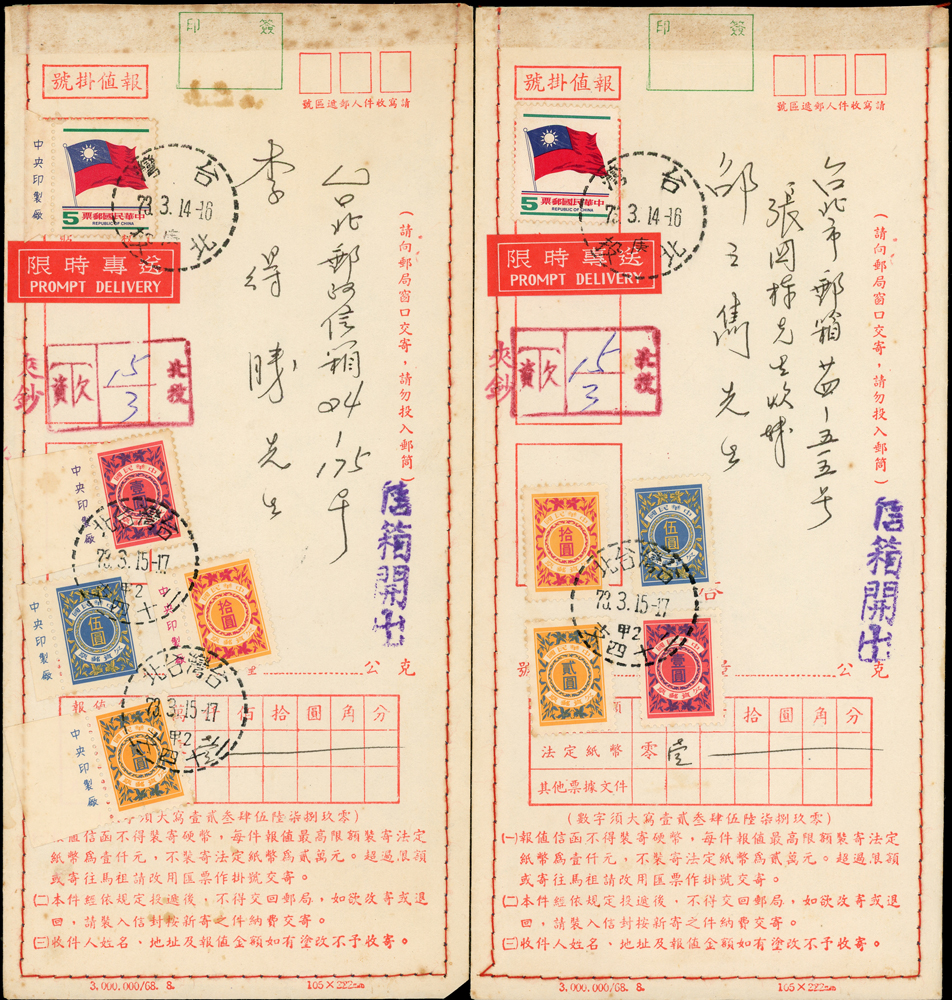 印 簽
號掛值報
號區遞郵人件收寫請
中央印製廠
5
票郵國民華中
REPUBLIC OF CHINA
台灣
73.3.14-16
北
限時專送
PROMPT DELIVERY
李得勝先生
台北郵政信箱84-175号
(請向郵局窗口交寄,請勿投入郵筒)
夾鈔
欠資
15/3
北投
信箱開出
中央印
壹圓
北台灣台
73.3.15-17
甲2
四十
中央印製廠
伍圓
中央印
拾圓
北台灣台
73.3.15-17
甲2
公克
報值
佰拾圓角分
中央印製廠
貳圓
數字須大寫壹貳叁肆伍陸柒捌玖零)
值信函不得裝寄硬幣,每件報值最高限額裝寄法定
紙幣爲壹仟元,不裝寄法定紙幣爲貳萬元。超過限額
或寄往馬祖請改用匯票作掛號交寄。
㈡本件經依規定投遞後,不得交回郵局,如欲改寄或退
回,請裝入信封按新寄之件納費交寄。
㈢收件人姓名、地址及報值金額如有塗改不予收寄。
3,000,000/68. 8. 105×222mm
印 簽
號掛值報
號區遞郵人件收寫請
5
票郵國民華中
REPUBLIC OF CHINA
台灣
73.3.14-16
北
限時專送
PROMPT DELIVERY
台北市郵箱
先生
(請向郵局窗口交寄,請勿投入郵筒)
夾鈔
欠資
15/3
北投
信箱開出
拾圓
中華民國
伍圓
北台灣台
73.3.15-17
甲2
四十
貳圓
壹圓
號
公克
拾圓角分
法定紙幣 零壹
其他票據文件
(數字須大寫壹貳叁肆伍陸柒捌玖零)
㈠報值信函不得裝寄硬幣,每件報值最高限額裝寄法定
紙幣爲壹仟元,不裝寄法定紙幣爲貳萬元。超過限額
或寄往馬祖請改用匯票作掛號交寄。
㈡本件經依規定投遞後,不得交回郵局,如欲改寄或退
回,請裝入信封按新寄之件納費交寄。
㈢收件人姓名、地址及報值金額如有塗改不予收寄。
3,000,000/68. 8. 105×222mm